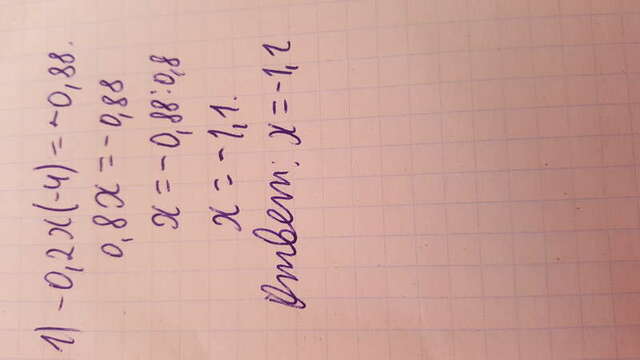 1) -0,2x(-4)=-0,88.
0,8x=-0,88
x=-0,88:0,8
x=-1,1.
Ответ: x=-1,2